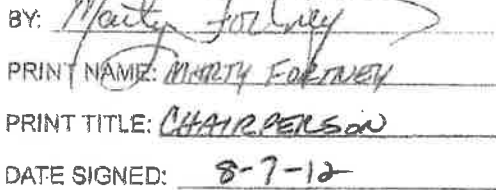 BY: Marty Fortney
PRINT NAME: MARTY FORTNEY
PRINT TITLE: CHAIRPERSON
DATE SIGNED: 8-7-12